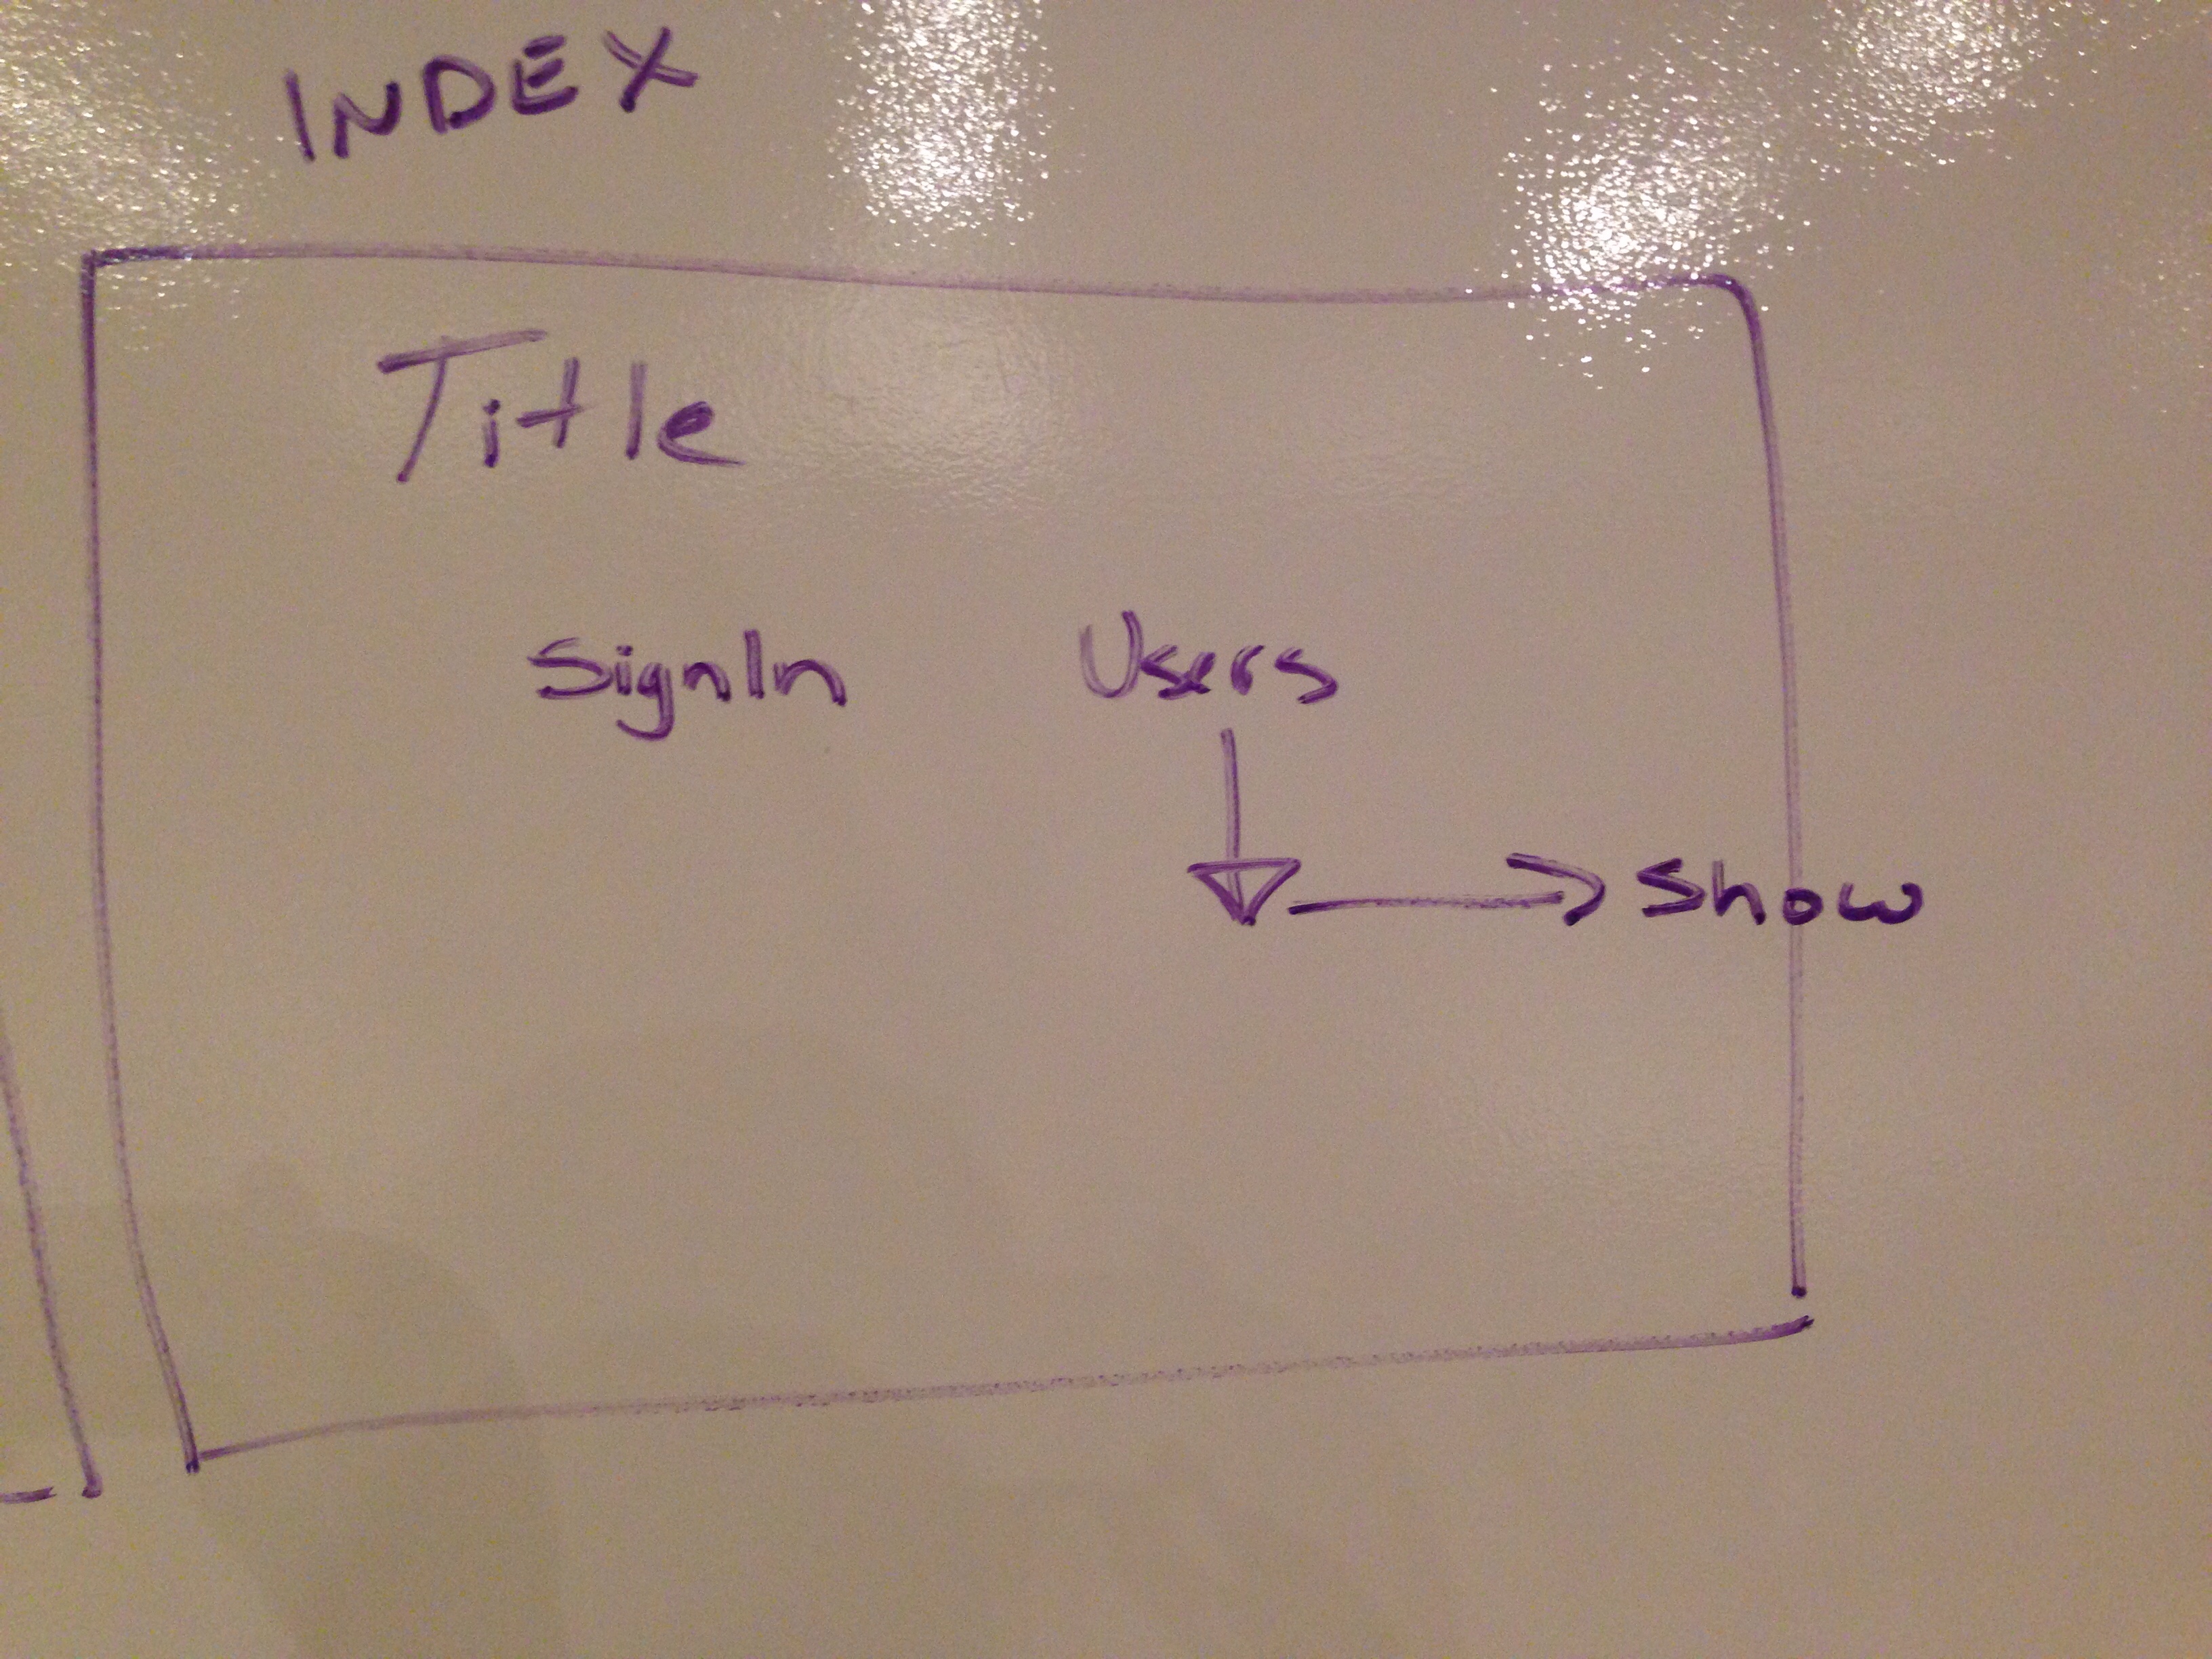 INDEX
Title
SignIn Users
Show